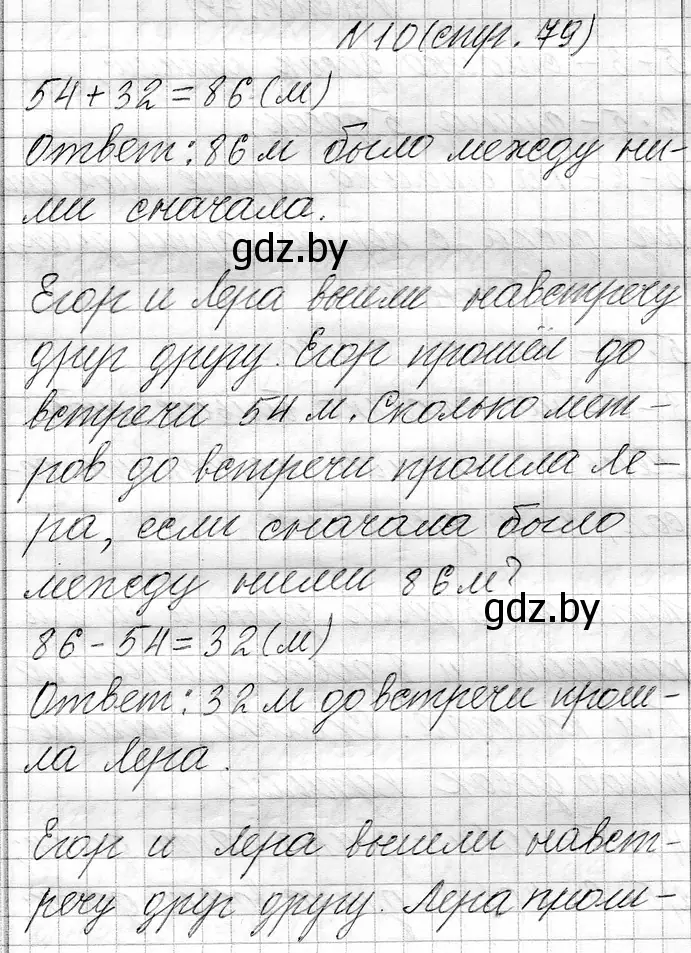 N10(стр. 79)
54+32=86(м)
Ответ: 86 м было между ни-
ми сначала.
gdz.by
Егор и Лера вышли навстречу
друг другу. Егор прошёл до
встречи 54 м. Сколько мет-
ров до встречи прошла Ле-
ра, если сначала было
между ними 86 м?
gdz.by
86-54=32(м)
Ответ: 32 м до встречи прош-
ла Лера.
Егор и Лера вышли навст-
речу друг другу. Лера прош-